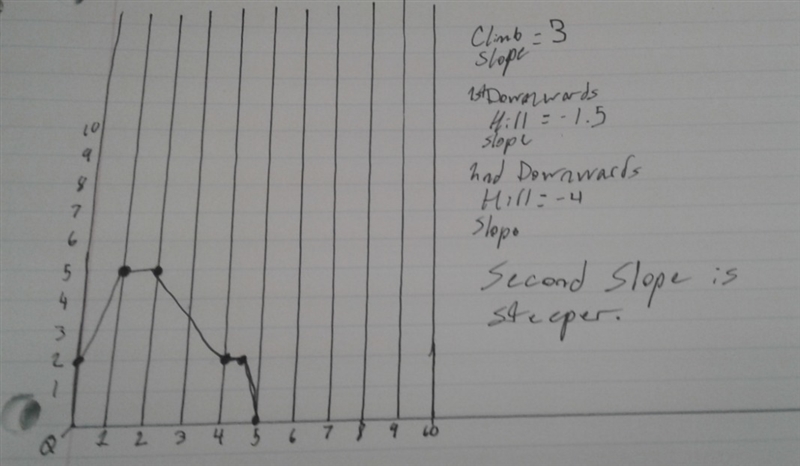 Climb = 3
Slope
1st Downwards
Hill = -1.5
slope
2nd Downwards
Hill = -4
Slope
Second Slope is
steeper.
10
9
8
7
6
5
4
3
2
1
0 1 2 3 4 5 6 7 8 9 10